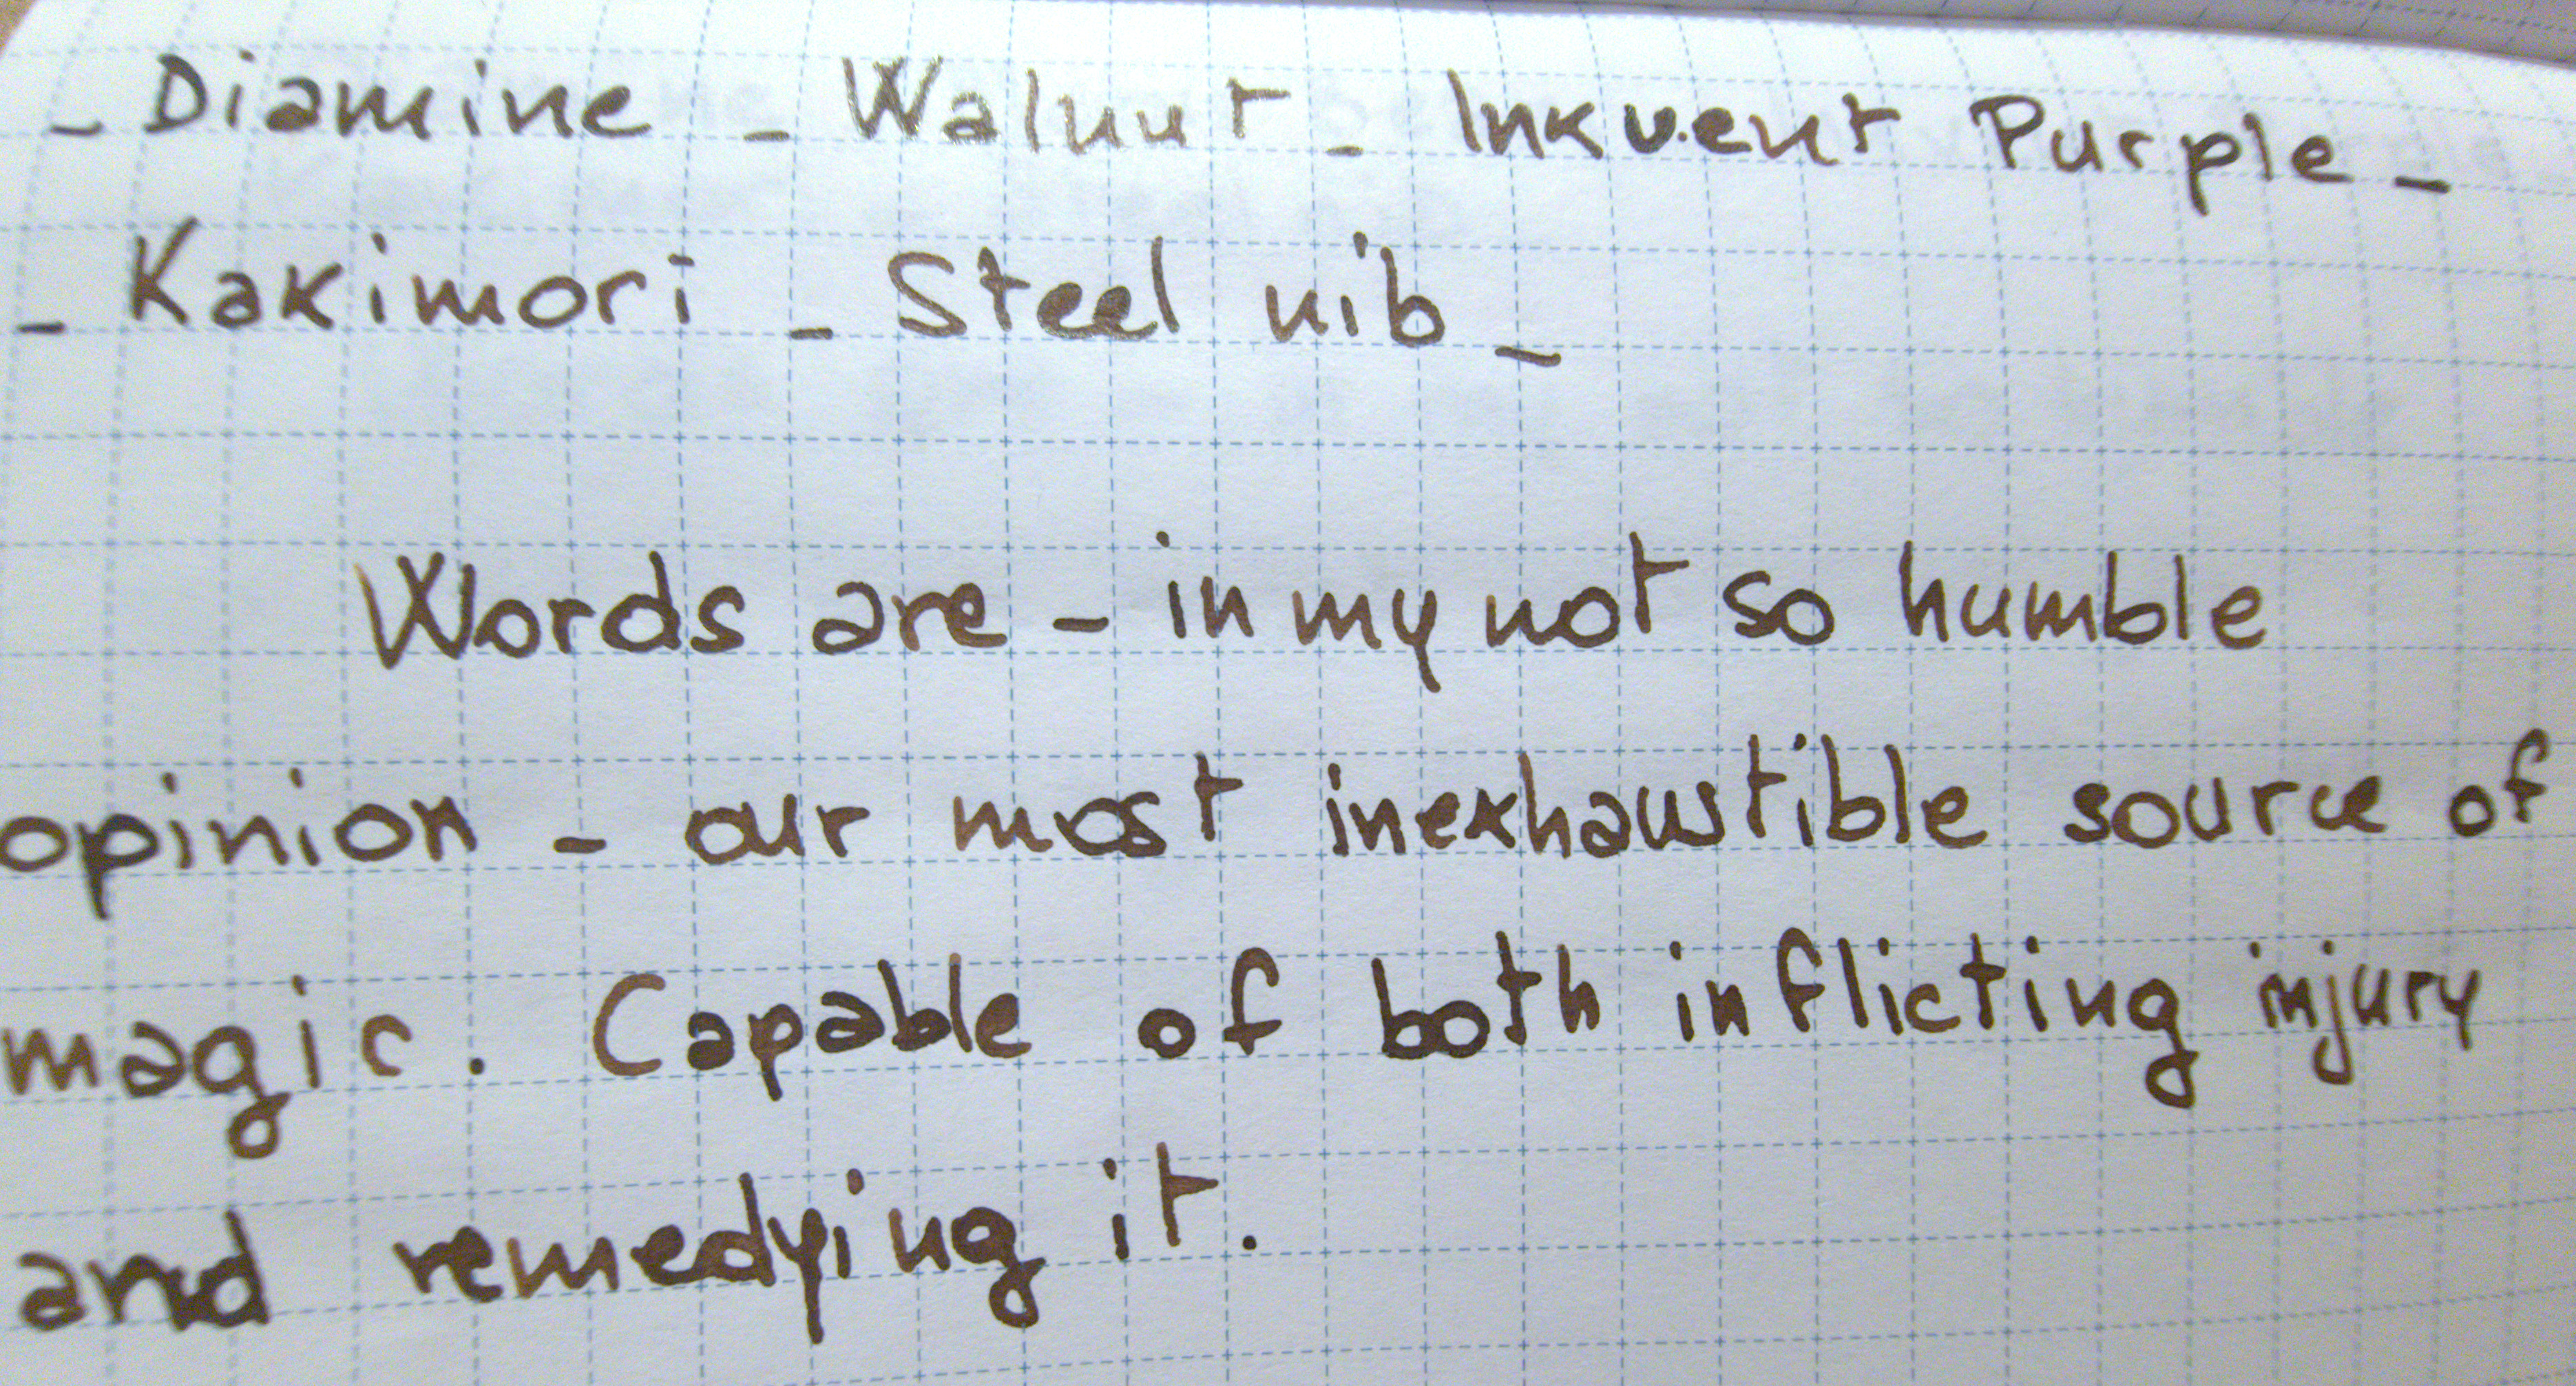 - Diamine - Walnut - Inkvent Purple -
- Kakimori - Steel nib -
Words are - in my not so humble
opinion - our most inexhaustible source of
magic. Capable of both inflicting injury
and remedying it.